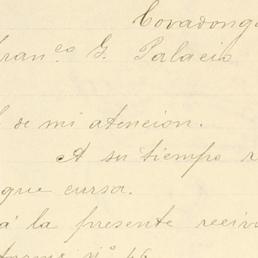 Covadonga
Fran.co G. Palacio
de mi atencion.
A su tiempo r
que cursa.
á la presente reciv
No 46